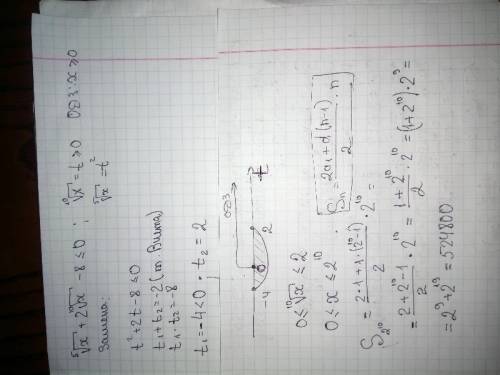 ⁵√x + 2¹⁰√x - 8 ≤ 0 ; ¹⁰√x = t ≥ 0 ОДЗ: x ≥ 0
Замена: ⁵√x = t²
t² + 2t - 8 ≤ 0
t₁ + t₂ = -2 (т. Виета)
t₁ · t₂ = -8
t₁ = -4 < 0 ; t₂ = 2
ОДЗ
-4 0 2 t
0 ≤ ¹⁰√x ≤ 2
0 ≤ x ≤ 2¹⁰. Sₙ = (2a₁ + d(n-1))/2 · n
S₂¹⁰ = (2·1 + 1·(2¹⁰-1))/2 · 2¹⁰ =
= (2 + 2¹⁰ - 1)/2 · 2¹⁰ = (1 + 2¹⁰)/2 · 2¹⁰ = (1 + 2¹⁰) · 2⁹ =
= 2⁹ + 2¹⁹ = 524800